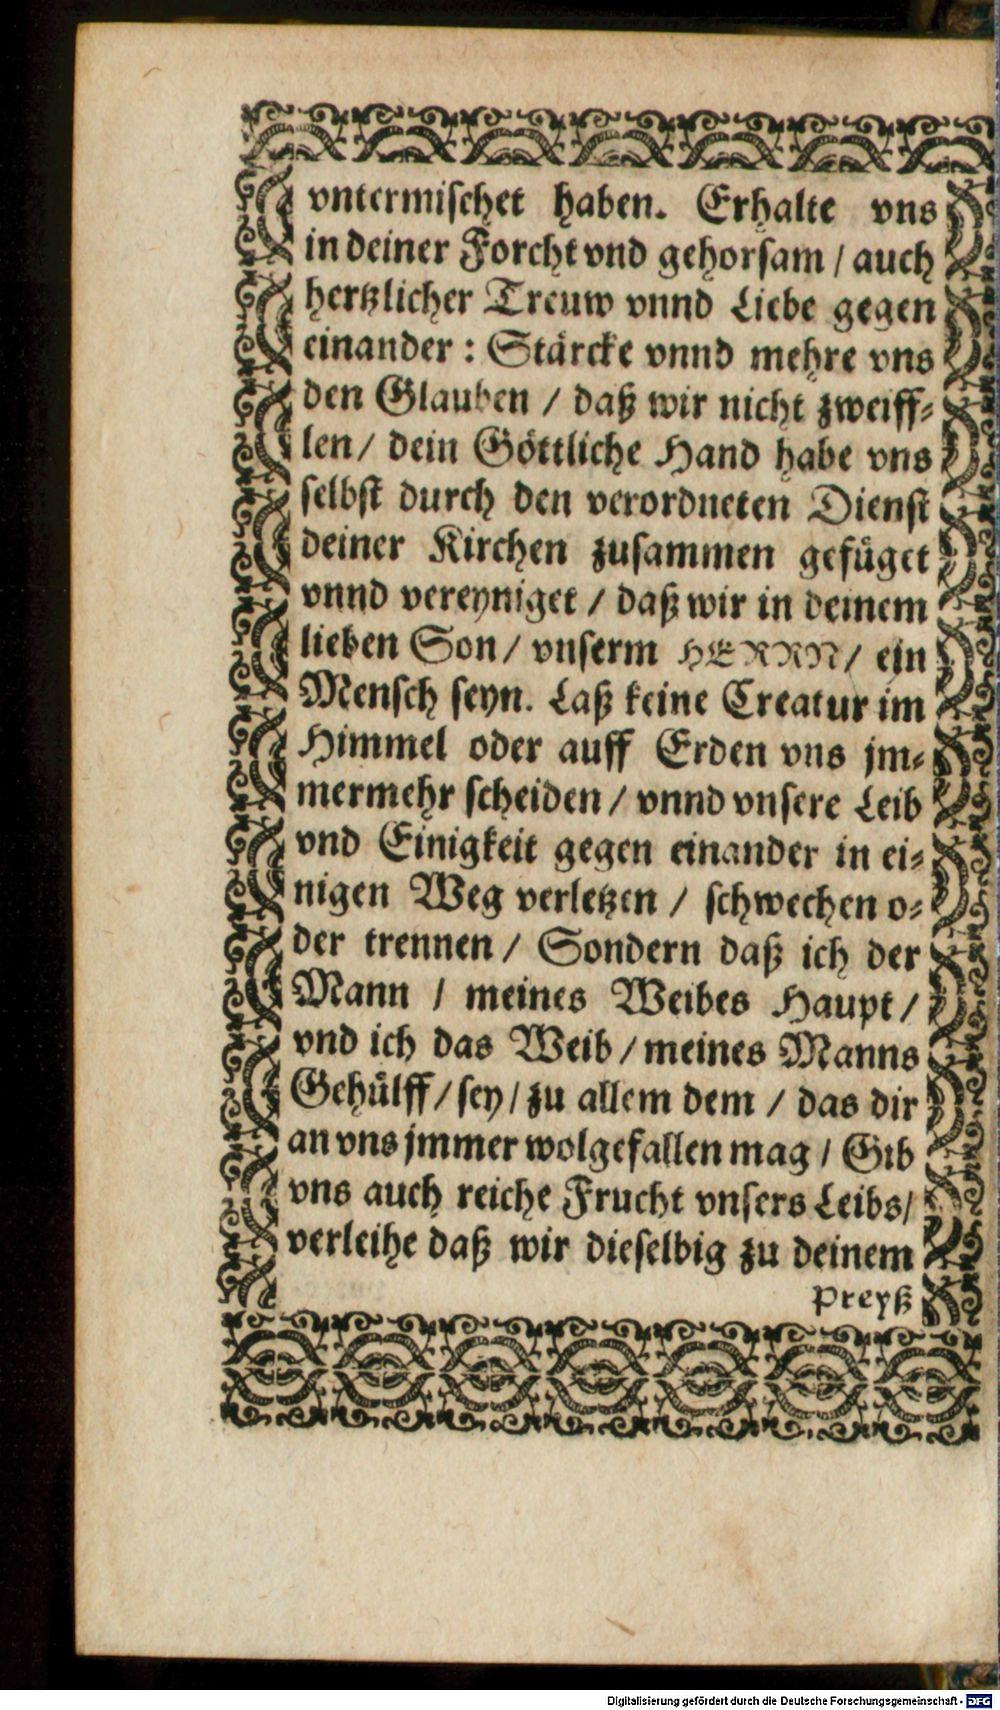 vntermischet haben. Erhalte vns
in deiner Forcht vnd gehorsam / auch
hertzlicher Treuw vnnd Liebe gegen
einander : Stärcke vnnd mehre vns
den Glauben / daß wir nicht zweiff-
len / dein Göttliche Hand habe vns
selbst durch den verordneten Dienst
deiner Kirchen zusammen gefüget
vnnd vereyniget / daß wir in deinem
lieben Son / vnserm HERRN / ein
Mensch seyn. Laß keine Creatur im
Himmel oder auff Erden vns jm-
mermehr scheiden / vnnd vnsere Leib
vnd Einigkeit gegen einander in ei-
nigen Weg verletzen / schwechen o-
der trennen / Sondern daß ich der
Mann / meines Weibes Haupt /
vnd ich das Weib / meines Manns
Gehülff / sey / zu allem dem / das dir
an vns jmmer wolgefallen mag / Gib
vns auch reiche Frucht vnsers Leibs /
verleihe daß wir dieselbig zu deinem
Preyß
Digitalisierung gefördert durch die Deutsche Forschungsgemeinschaft - DFG